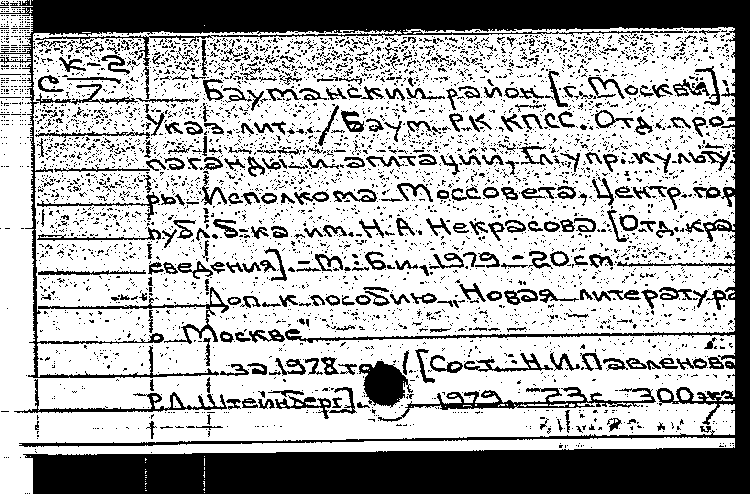 К-2
С 7
Бауманский район [г. Москвы]:
Указ. лит... / Баум. РК КПСС. Отд. про-
паганды и агитации, Гл. упр. культу-
ры Исполкома Моссовета, Центр. гор.
публ. б-ка им. Н. А. Некрасова [Отд. кра-
еведения]. - М.: Б. и., 1979. - 20 см.
Доп. к пособию „Новая литература
о Москве"
за 1978 год / [Сост.: Н. И. Павленова,
Р. Л. Штейнберг]. 1979. 23 с. 300 экз.